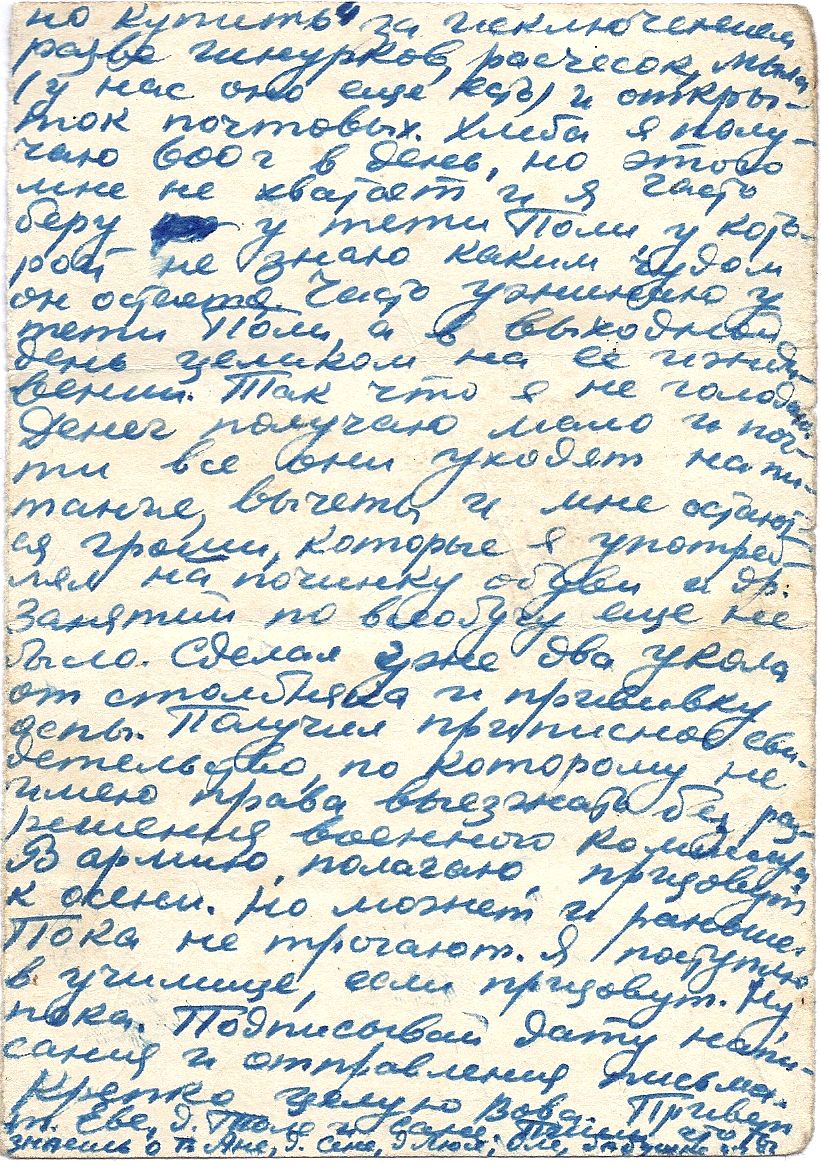 но купить за исключением
разве шнурков, расчесок, мыла
(у нас оно еще есть) и откры-
ток почтовых. Хлеба я полу-
чаю 600 г в день, но этого
мне не хватает и я часто
беру у тети Поли, у кото-
рой не знаю каким чудом
он остается. Часто ужинаю у
тети Поли, а в выходной
день целиком на ее ижди-
вении. Так что я не голодаю.
Денег получаю мало и поч-
ти все они уходят на пи-
тание, вычеты и мне остают-
ся гроши, которые я употреб
лял на починку обуви и др.
Занятий по всеобучу еще не
было. Сделал уже два укола
от столбняка и прививку
оспы. Получил приписное сви-
детельство, по которому не
имею права выезжать без раз-
решения военного комиссара.
В армию, полагаю, призовут
к осени. Но может и раньше.
Пока не трогают. Я поступлю
в училище, если призовут. Ну
пока. Подписывай дату напи-
сания и отправления письма.
Крепко целую Вова. Привет
т. Еве, д. Толе и Сане. Пиши что ты
знаешь о т. Ане, д. Сене, д. Люсе, Оле, бабушке